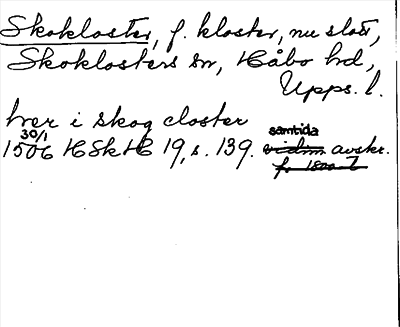 Skokloster, f. kloster, nu slott,
Skoklosters sn, Håbo hd,
Upps. l.
hver i skog closter
30/1 samtida
1506 HSkH 19, s. 139. vidim avskr.
fr 1800-t